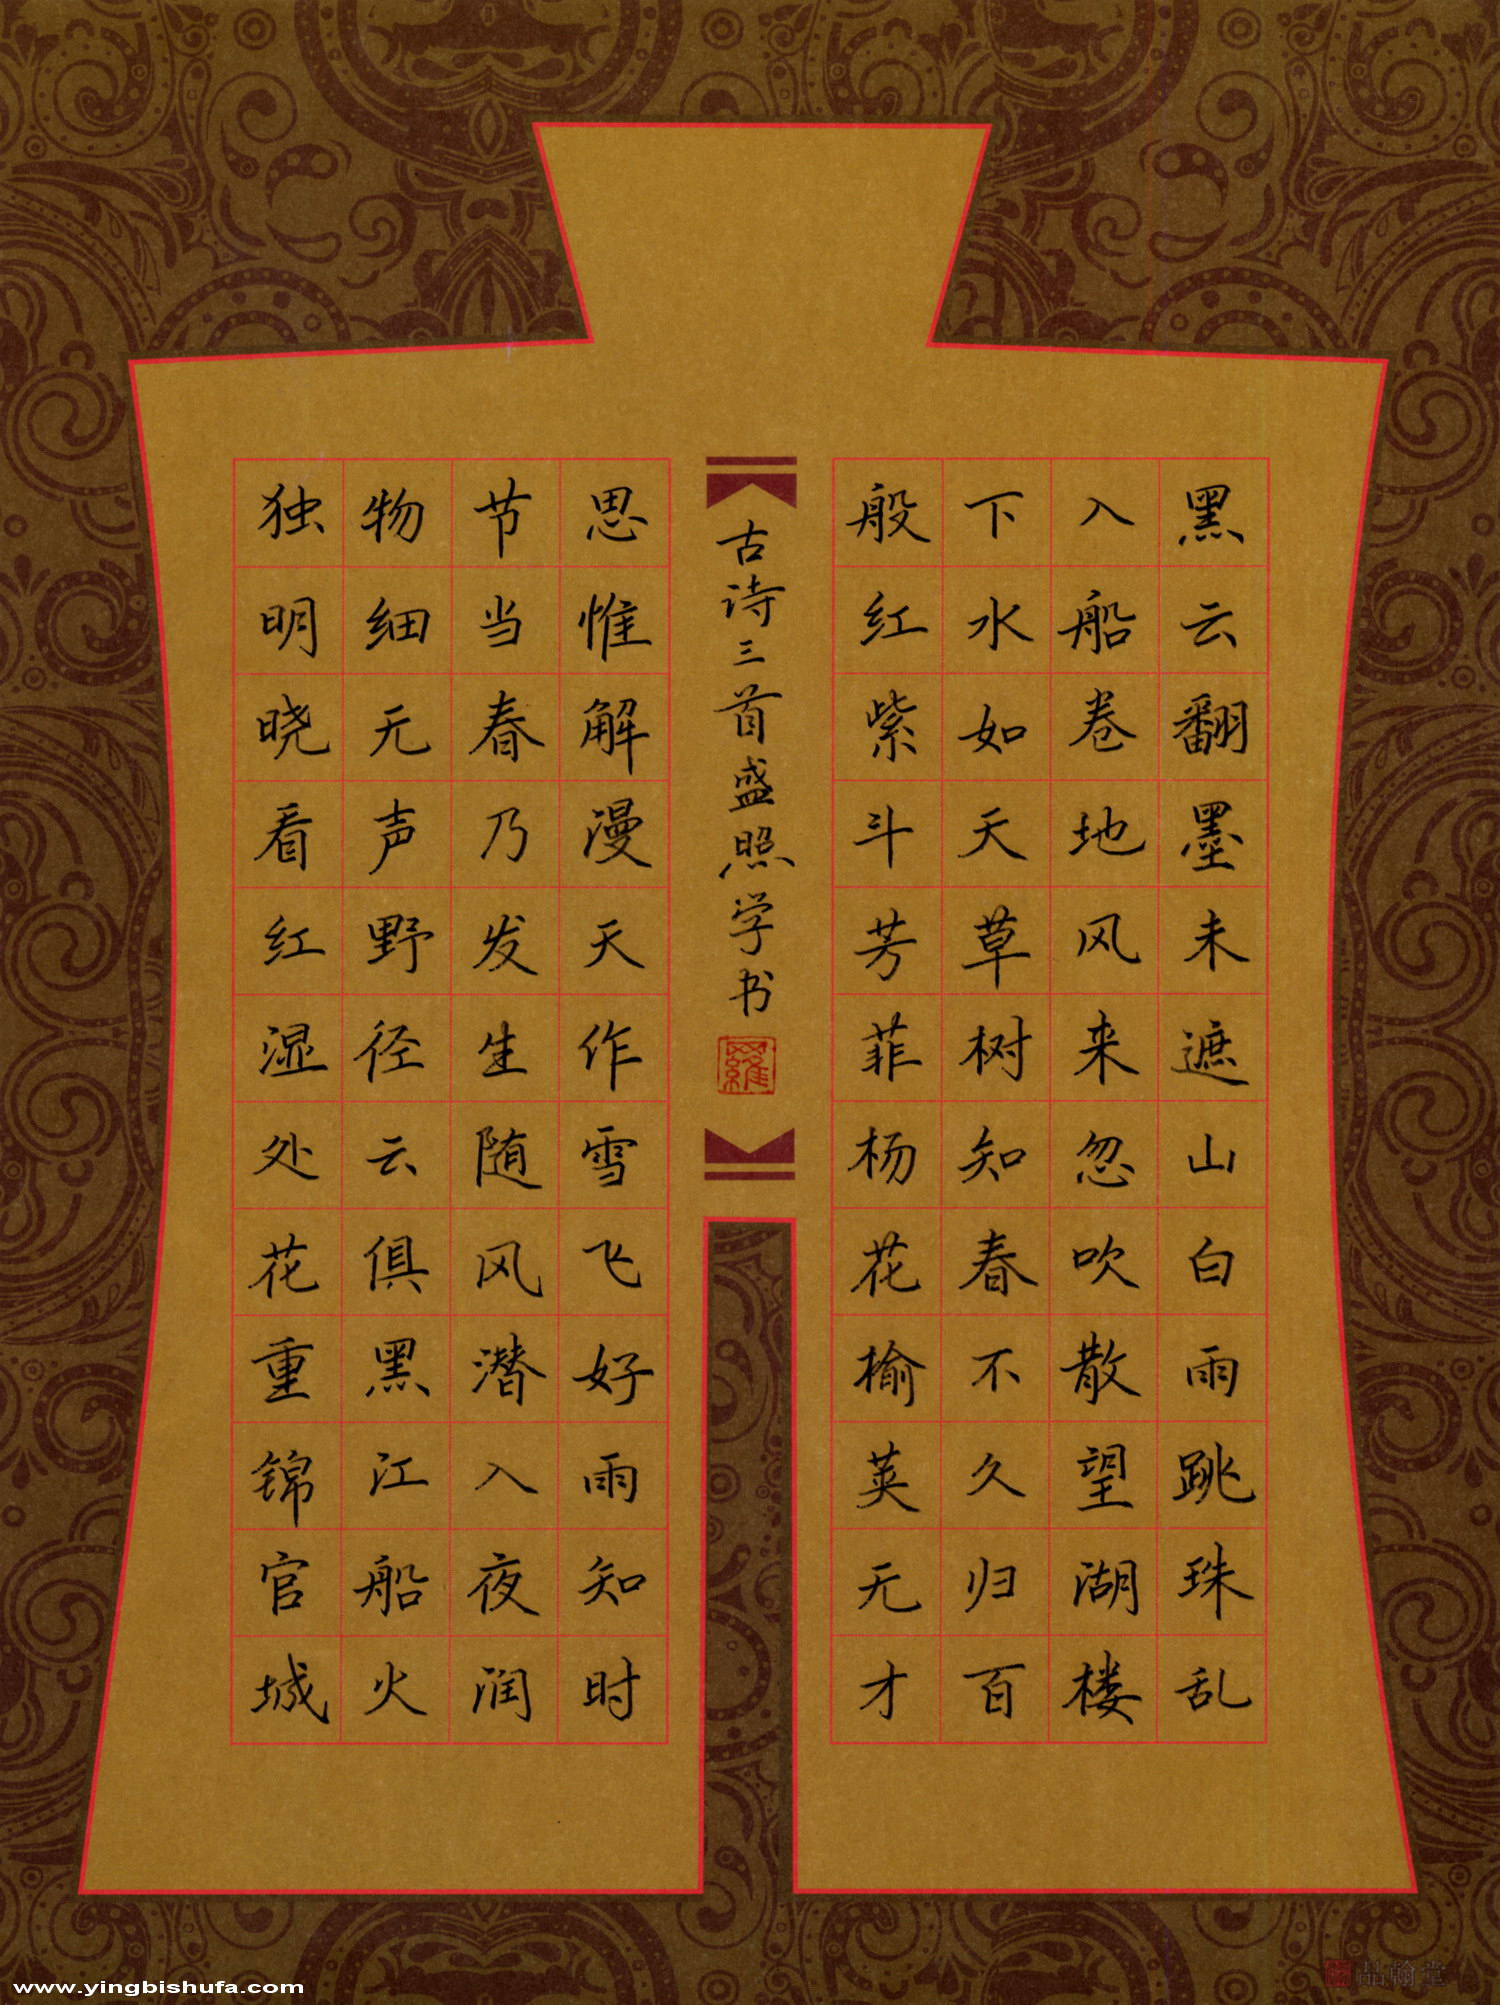 黑云翻墨未遮山白雨跳珠乱
入船卷地风来忽吹散望湖楼
下水如天草树知春不久归百
般红紫斗芳菲杨花榆荚无才
古诗三首盛照学书
羅
思惟解漫天作雪飞好雨知时
节当春乃发生随风潜入夜润
物细无声野径云俱黑江船火
独明晓看红湿处花重锦官城
www.yingbishufa.com
品翰堂